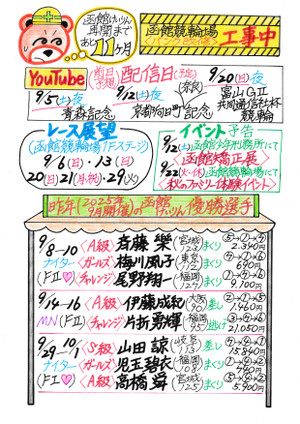 函館けいりん
再開まで
あと11ヶ月
函館競輪場
工事中
YouTube 前日予想 配信日(予定)
9/5(土)夜
青森記念
9/12(土)夜(奈良)
京都向日町記念
9/20(日)夜
富山GⅡ
共同通信社杯
競輪
レース展望
(函館競輪場1Fステージ)
9/6(日)・13(日)
20(日)21(月・祝)・29(火)
イベント予告
9/12(土)函館少年刑務所にて
〈函館矯正展〉
9/22(火・休)函館競輪場にて
〈秋のファミリー体験イベント〉
昨年(2025年9月開催)の函館けいりん優勝選手
9/8-10
ナイター
(FⅡ♡)
〈A級〉斉藤 樂(宮城123)まくり ⑤-①-④ 2.340円
〈ガールズ〉梅川風子(東京112)まくり 690円
〈チャレンジ〉尾野翔一(福岡)まくり 9.100円
9/14-16
MN(FⅡ)
〈A級〉伊藤成紀(大阪90)差し 1.460円
〈チャレンジ〉片折勇輝(福岡)逃げ 21,050円
9/29-10/1
ナイター
(FⅠ♡)
〈S級〉山田 諒(岐阜113)差し 15.840円
〈ガールズ〉児玉碧衣(福岡108)まくり 440円
〈A級〉高橋 舜(宮城125)まくり 5.900円